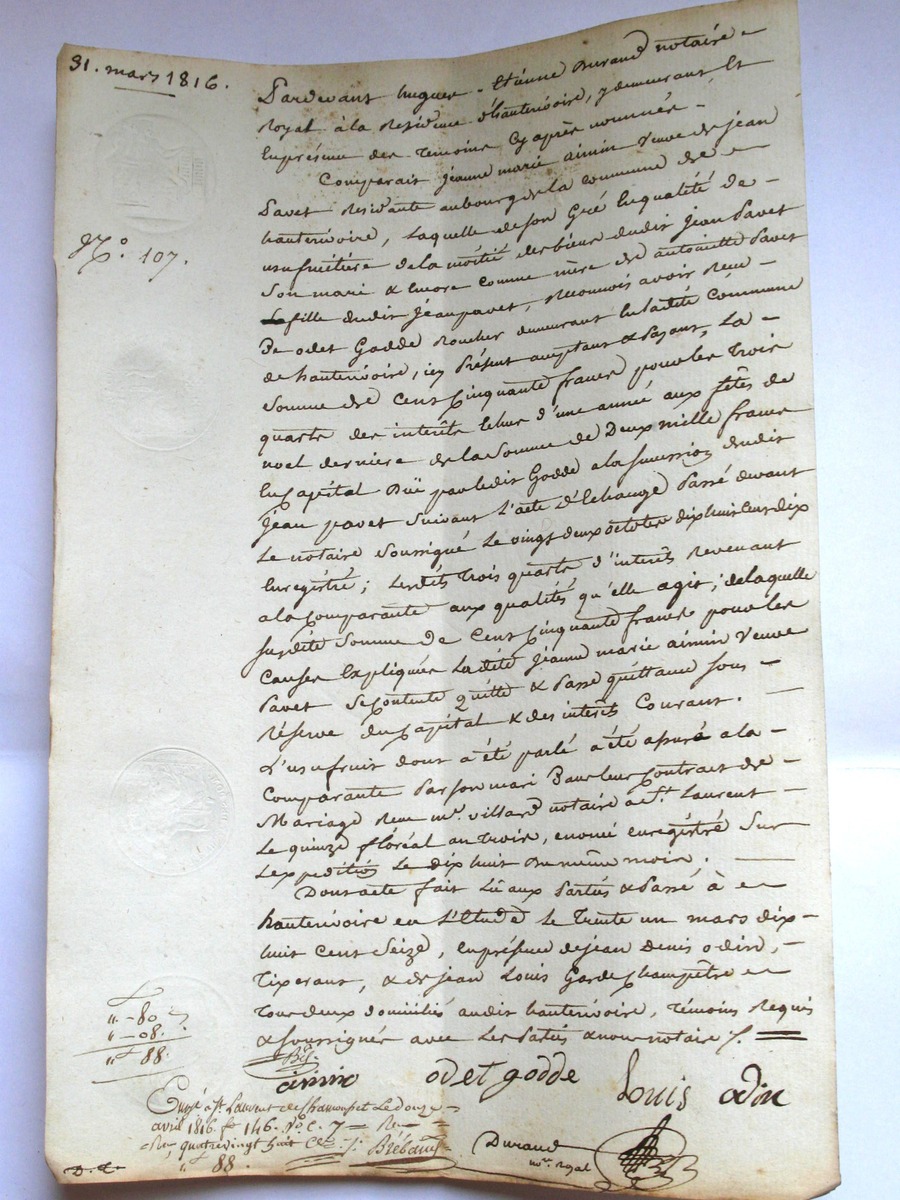 31. mars 1816.
N.º 107.
Pardevant hugues - Etienne Durand notaire
Royal à la Residence d'hauterivoire, y demeurant Et
En présence des Temoins Cy après nommés -
Comparait jeanne marie aimin Veuve de jean
Pavet Residante au bourg de la commune de
hauterivoire, Laquelle de son Gré En qualité de -
usufruitiere de la moitié des biens dudit Jean Pavet
Son mari & Encore comme mère de antoinette Pavet
fille dudit jean pavet, reconnois avoir Reçu -
De odet Godde demeurant En ladite Commune
de hauterivoire, icy Présent acceptant & Payant, La -
Somme de Cent Cinquante francs pour les Trois
quarts des interêts Echus d'une année aux fêtes de
noel derniere de la Somme de Deux mille francs
En Capital Dûe par ledit Godde a la Succession dudit
jean pavet Suivant L'acte D'Echange Passé devant
Le notaire Soussigné Le vingt deux octobre dix huit Cent dix
Enregistré ; Lesdits Trois quarts d'interêts Revenant
a la Comparante aux qualités qu'elle agit ; de laquelle
susdite Somme de Cent Cinquante francs pour les
Causes Expliquées Ladite jeanne marie aimin Veuve
Pavet Se Contente quitte & Passe quittance sous -
Réserve du Capital & des interêts Courant. -
L'usufruit dont a été parlé a été assuré a la -
Comparante Par son mari Dans leur Contrat de -
Mariage Reçu m.e villard notaire a S.t Laurent -
Le quinze floréal an Trois, enregistré Sur
L'expedition Le dix huit du même mois. -
Dont acte fait Lû aux Parties & Passé à
hauterivoire en L'Etude Le Trente un mars dix -
huit Cent Seize, En présence de jean Denis odin, -
Tixerant, & de jean Louis Garde Champêtre
Tous deux domiciliés audit hauterivoire, Témoins Requis
& soussignés avec Les Parties & nous notaire /. =
" - 80
" - 08.
" 88.
aimin odet godde Louis odin
Enr.é a S.t Laurent de Chamousset Le douze
avril 1816. f.o 146. V.o C. 7
Reçu quatre vingt huit C.es /.
" 88.
Durand
no.re royal